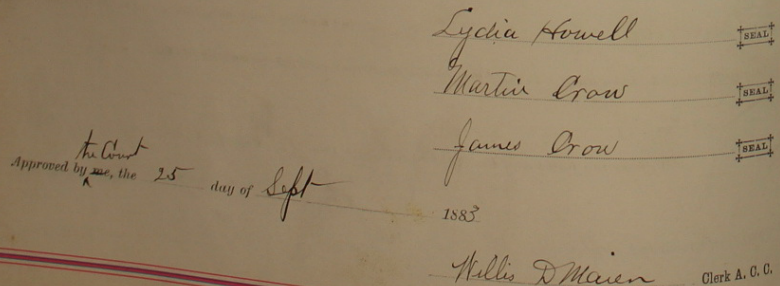 Lydia Howell SEAL
Martin Crow SEAL
James Crow SEAL
the Court
Approved by me, the 25 day of Sept 1883
Willis D Maien Clerk A. C. C.